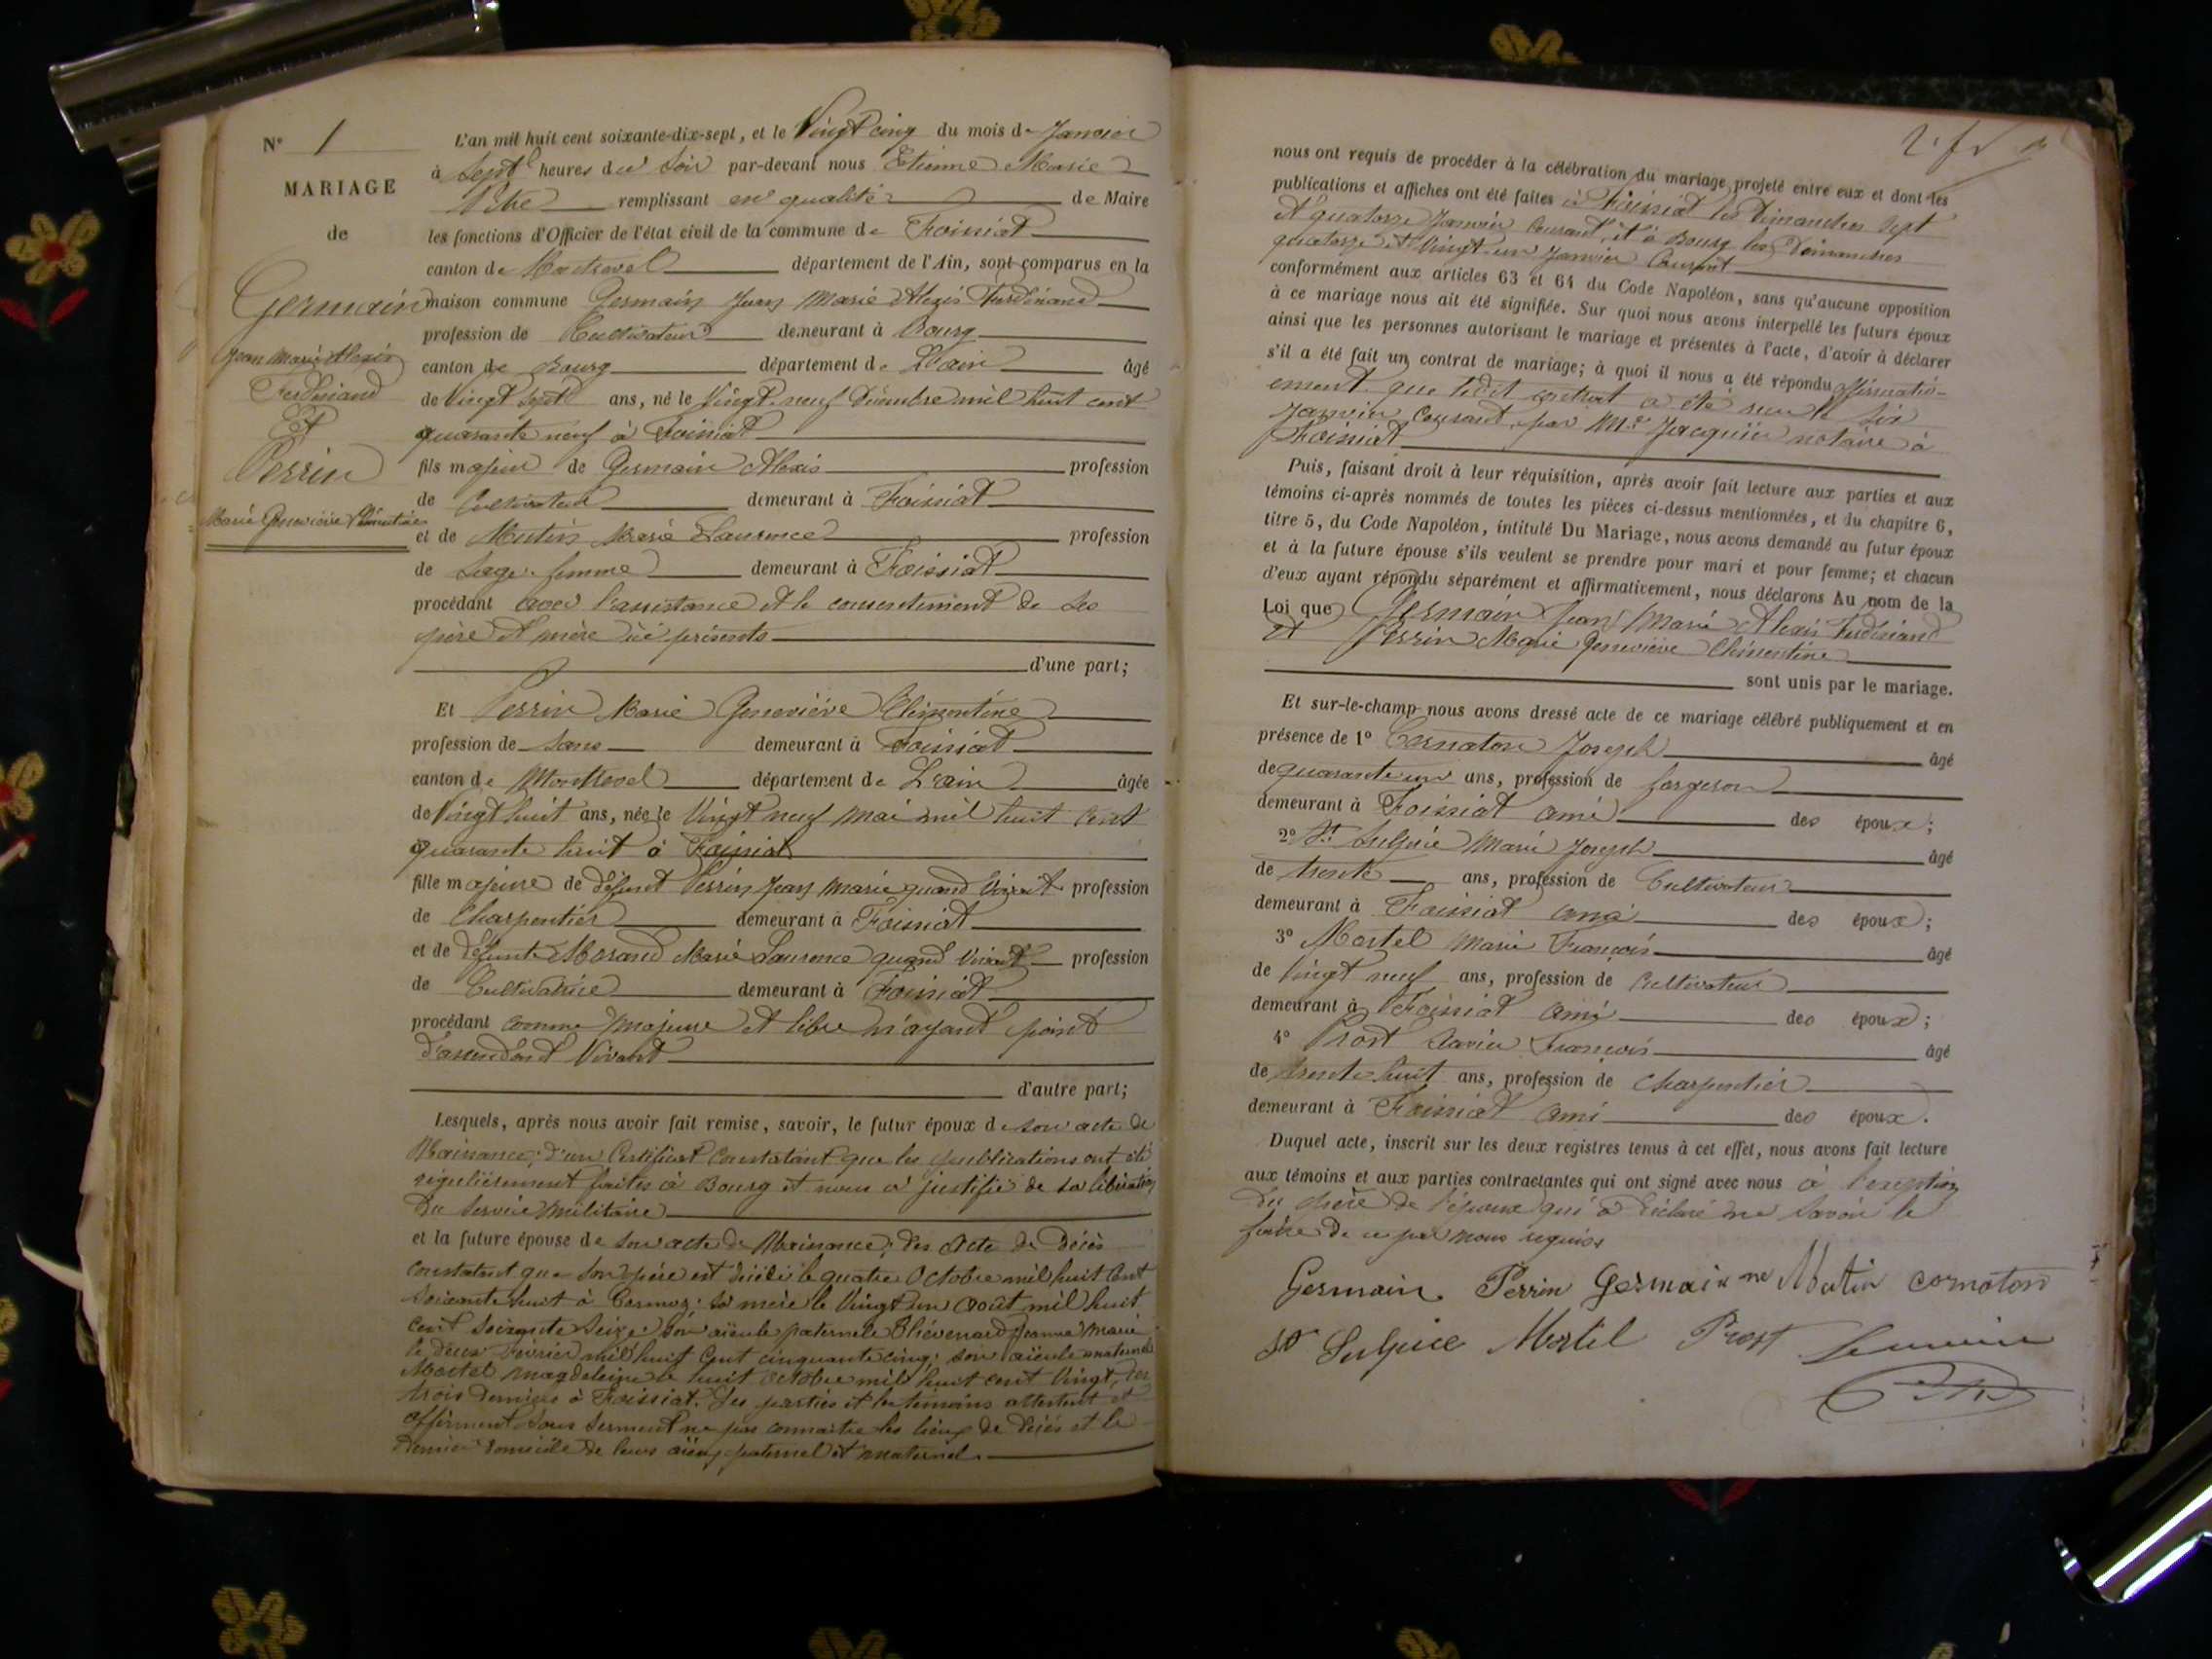 N° 1
MARIAGE
de
Germain
Jean Marie Alexis
Ferdinand
Et
Perrin
Marie Geneviève Clémentine
L'an mil huit cent soixante-dix-sept, et le Vingt cinq du mois de Janvier
à Sept heures du Soir par-devant nous Etienne Marie
remplissant en qualité de Maire
les fonctions d'Officier de l'état civil de la commune de Foissiat
canton de Montrevel département de l'Ain, sont comparus en la
maison commune Germain Jean Marie Alexis Ferdinand
profession de Cultivateur demeurant à Bourg
canton de Bourg département de L'ain âgé
de Vingt Sept ans, né le Vingt neuf Décembre mil huit cent
quarante neuf à Foissiat
fils majeur de Germain Alexis profession
de Cultivateur demeurant à Foissiat
et de Mutin Marie Laurence profession
de Sage-femme demeurant à Foissiat
procédant avec l'assistance et le consentement de ses
père et mère ici présents
d'une part;
Et Perrin Marie Geneviève Clémentine
profession de sans demeurant à Foissiat
canton de Montrevel département de L'ain âgée
de Vingt huit ans, née le Vingt neuf Mai mil huit Cent
quarante huit à Foissiat
fille majeure de défunt Perrin Jean Marie quand Vivait profession
de Charpentier demeurant à Foissiat
et de défunte Morand Marie Laurence quand Vivait profession
de Cultivatrice demeurant à Foissiat
procédant comme Majeure et libre n'ayant point
d'ascendant Vivant
d'autre part;
Lesquels, après nous avoir fait remise, savoir, le futur époux de son acte de
Naissance; d'un Certificat Constatant que les publications ont été
régulièrement faites à Bourg et nous a justifié de sa libération
du Service Militaire
et la future épouse de son acte de Naissance; des Acte de Décès
constatant que son père est décédé le quatre Octobre mil huit Cent
soixante huit à ; sa mère le Vingt un août mil huit
cent soixante Seize; son aïeule paternele Thévenard Jeanne Marie
le deux Février mil huit Cent cinquante cinq; son aïeule maternel
Mortel Magdeleine le huit octobre mil huit cent Vingt, les
trois derniers à Foissiat. Les parties et les témoins attestent et
affirment sous serment ne pas connaître les lieux de Décès et le
Dernier Domicile de leurs aïeux paternel et maternel.
nous ont requis de procéder à la célébration du mariage projeté entre eux et dont les
publications et affiches ont été faites à Foissiat les Dimanches sept
et quatorze Janvier Courant, et à Bourg les Dimanches
quatorze et Vingt un Janvier Courant
conformément aux articles 63 et 64 du Code Napoléon, sans qu'aucune opposition
à ce mariage nous ait été signifiée. Sur quoi nous avons interpellé les futurs époux
ainsi que les personnes autorisant le mariage et présentes à l'acte, d'avoir à déclarer
s'il a été fait un contrat de mariage; à quoi il nous a été répondu affirmativ-
ement que ledit contrat a été reçu le six
Janvier Courant, par Me Jacquin notaire à
Foissiat
Puis, faisant droit à leur réquisition, après avoir fait lecture aux parties et aux
témoins ci-après nommés de toutes les pièces ci-dessus mentionnées, et du chapitre 6,
titre 5, du Code Napoléon, intitulé Du Mariage, nous avons demandé au futur époux
et à la future épouse s'ils veulent se prendre pour mari et pour femme; et chacun
d'eux ayant répondu séparément et affirmativement, nous déclarons Au nom de la
Loi que Germain Jean Marie Alexis Ferdinand
Et Perrin Marie Geneviève Clémentine
sont unis par le mariage.
Et sur-le-champ nous avons dressé acte de ce mariage célébré publiquement et en
présence de 1° Cornaton Joseph âgé
de quarante un ans, profession de forgeron
demeurant à Foissiat ami des époux;
2° St Sulpice Marie Joseph âgé
de trente ans, profession de Cultivateur
demeurant à Foissiat ami des époux;
3° Mortel Marie François âgé
de Vingt neuf ans, profession de Cultivateur
demeurant à Foissiat ami des époux;
4° Prost Xavier François âgé
de trente huit ans, profession de Charpentier
demeurant à Foissiat ami des époux.
Duquel acte, inscrit sur les deux registres tenus à cet effet, nous avons fait lecture
aux témoins et aux parties contractantes qui ont signé avec nous à l'exception
du père de l'époux qui a déclaré ne savoir le
faire de ce par nous requis
Germain Perrin Germain ne Mutin cornaton
St Sulpice Mortel Prost